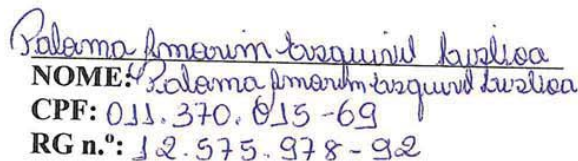 Paloma Amorim Esquivel
NOME: Paloma Amorim Esquivel
CPF: 011.370.015-69
RG n.º: 12.575.978-92